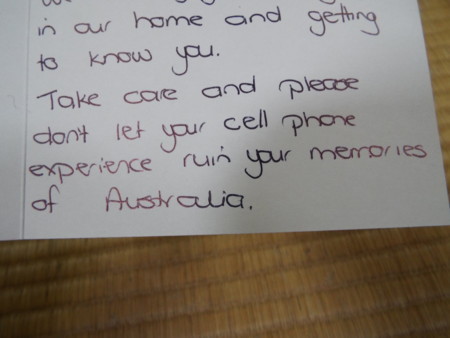 in our home and getting
to know you.
Take care and please
don't let your cell phone
experience ruin your memories
of Australia.